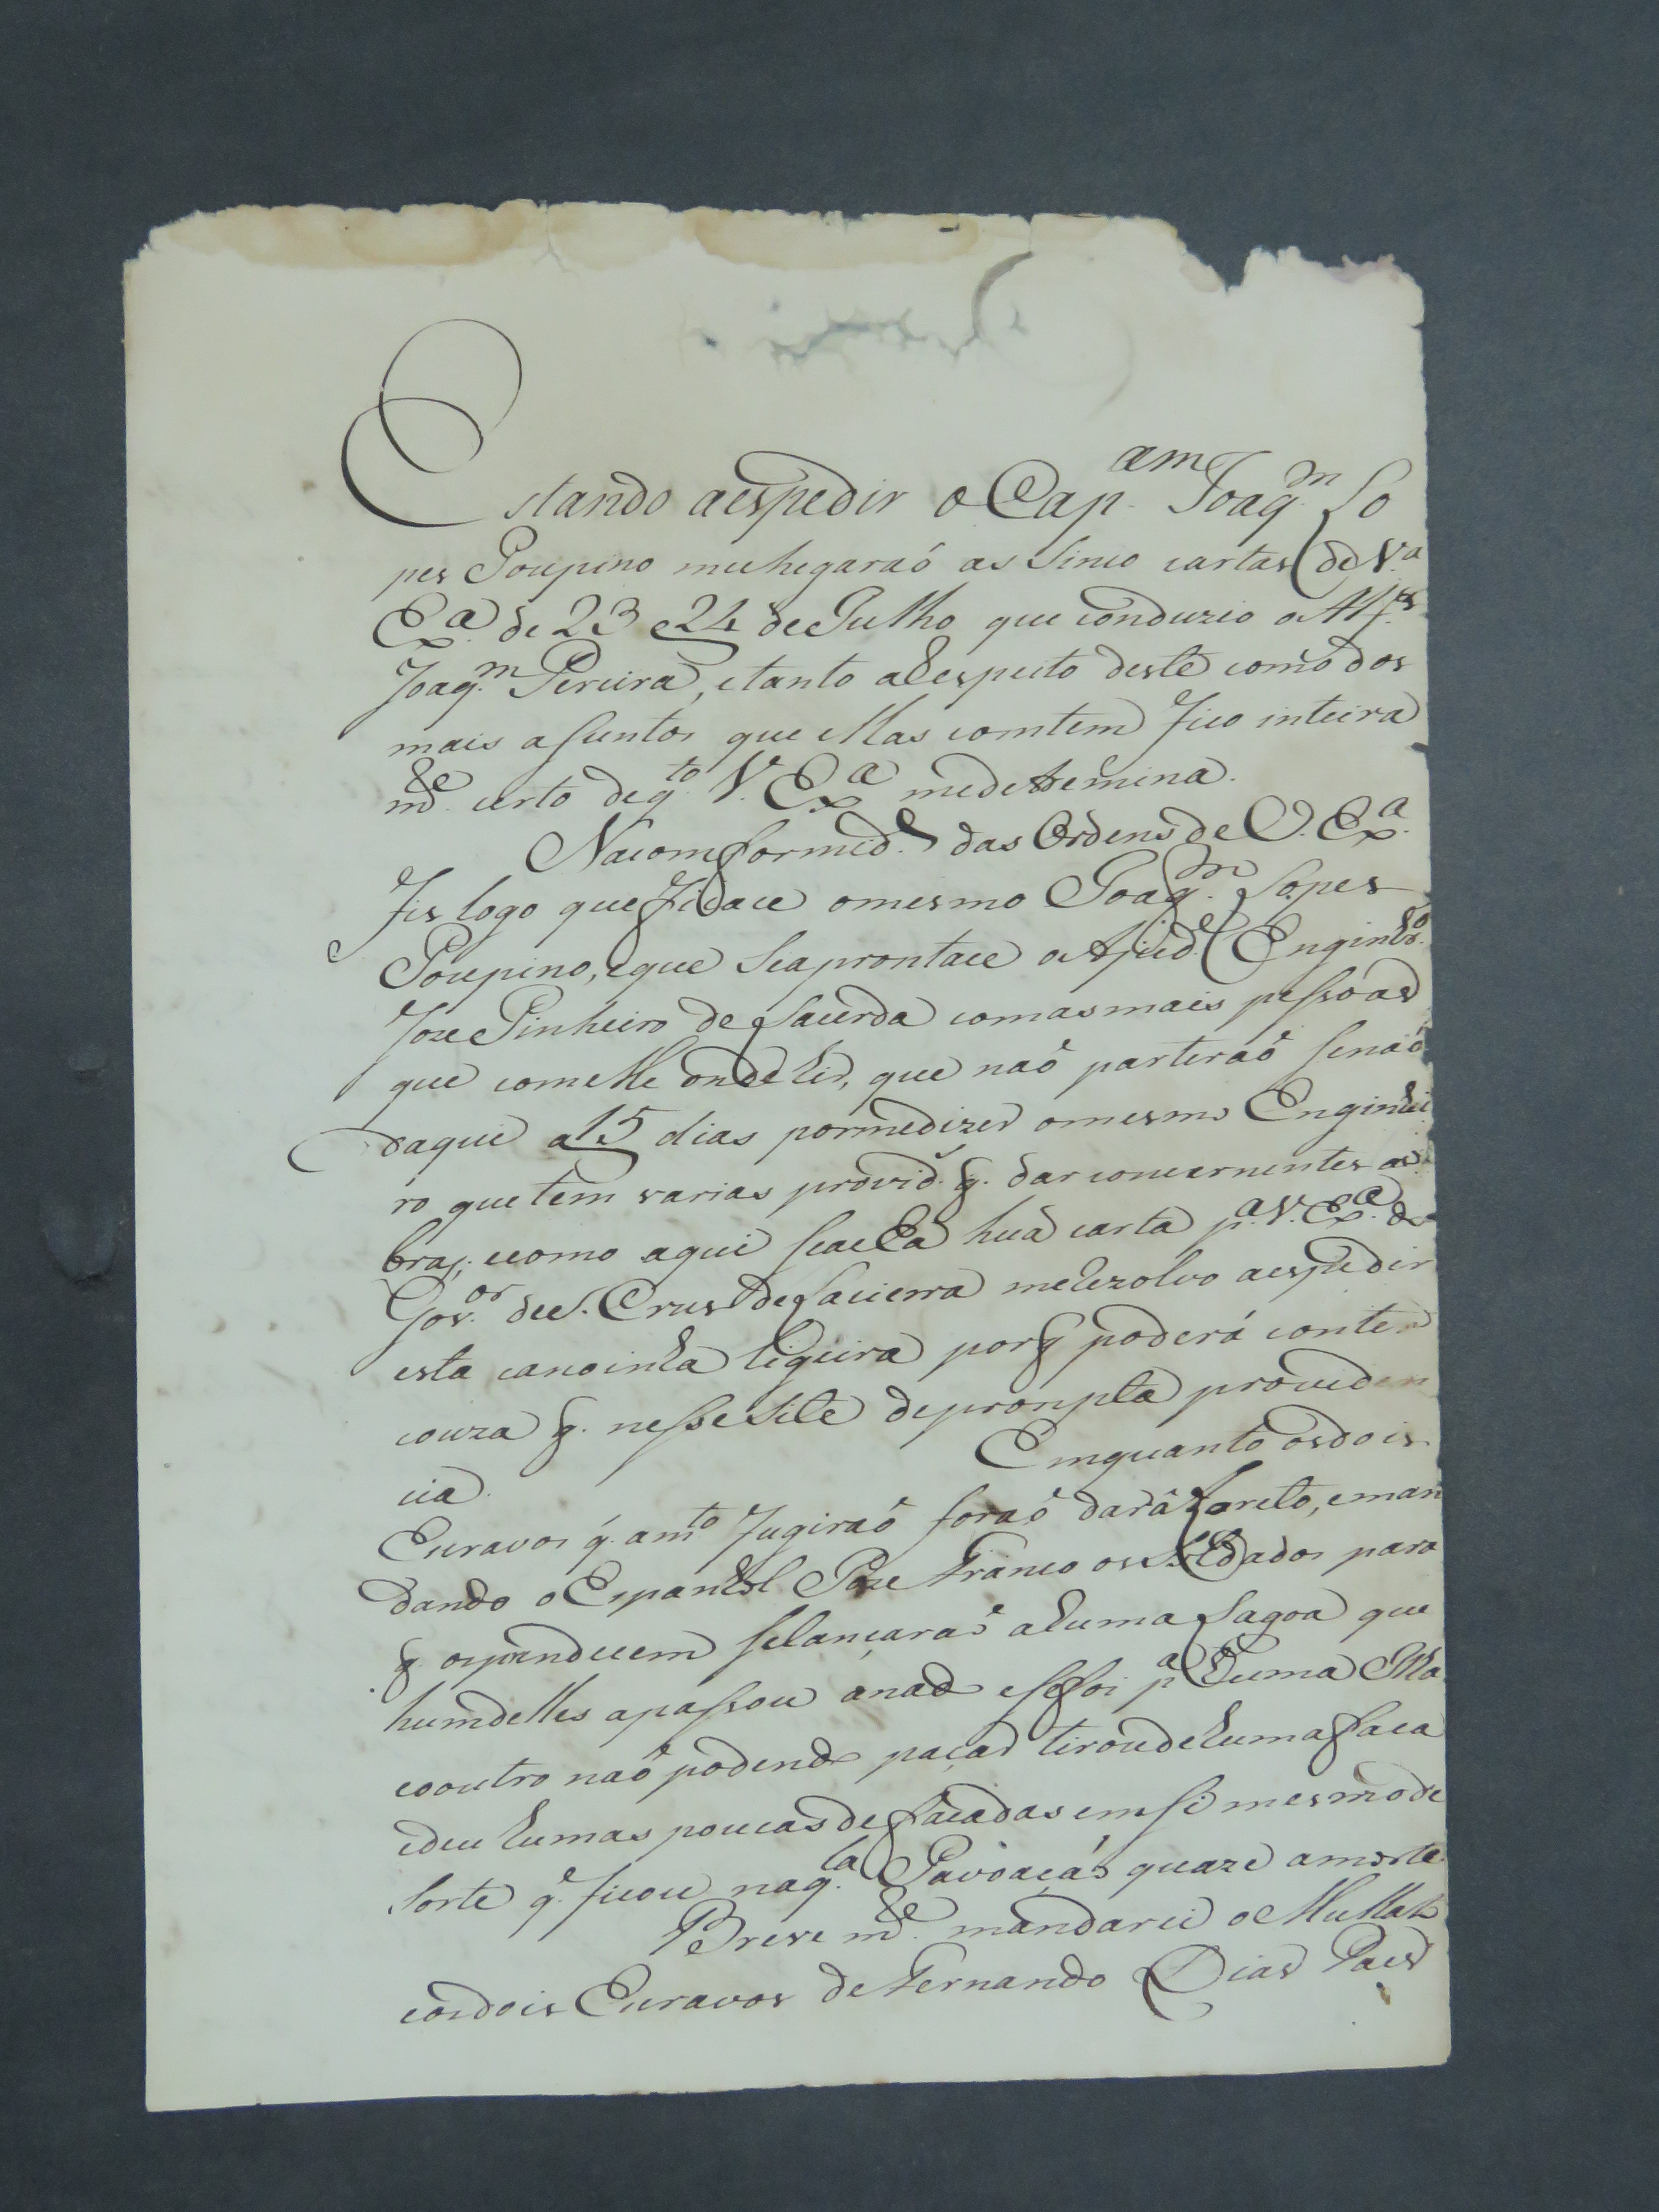 Estando aespedir o Cap.am Joaq.m Lo
pes Poupino mechegaraó as sinco cartas de V.a
Ex.a de 23 e 24 de Julho que conduzio o Alf.es
Joaq.m Pereira, e tanto aRespeito deste como dos
mais asuntos que ellas comtem fico inteira
m.de certo deq.to V. Ex.a medetremina.
Nacomformid.e das Ordens de V. Ex.a
fis logo que ficace omesmo Joaq.m Lopes
Poupino, eque seaprontace o Ajud.e Enginhr.o
Joze Pinheiro de Lacerda comasmais pessoas
que comelle ondehir, que naó partiraó senaó
daqui a 15 dias pormedizer omesmo Enginhei
ro que tem varias provid. q. dar concernentes as
bras; ecomo aqui seacha huá carta p.a V. Ex.a do
Gov.or de S. Crus delacierra meRezolvo aespedir
esta canoinha ligeira porq poderá conter
couza q. nessesite depronpta providen
cia.
Emquanto osdois
Escravos q. am.to fugiraó foraó dar á Loreto, eman
dando o Espanhol Joze Franco os Soldados para
q. osprendecem selancaraó ahuma Lagoa que
hum delles apassou anado esefoi p.a huma Ilha
eooutro naó podendo paçar tirou dehuma faca
edeu humas poucas defacadas emsi mesmo de
sorte q. ficou naq.la Pavoacáo quaze amorte
Breve m.de mandarei o Mullato
eosdois Escravos de Fernando Dias Paes